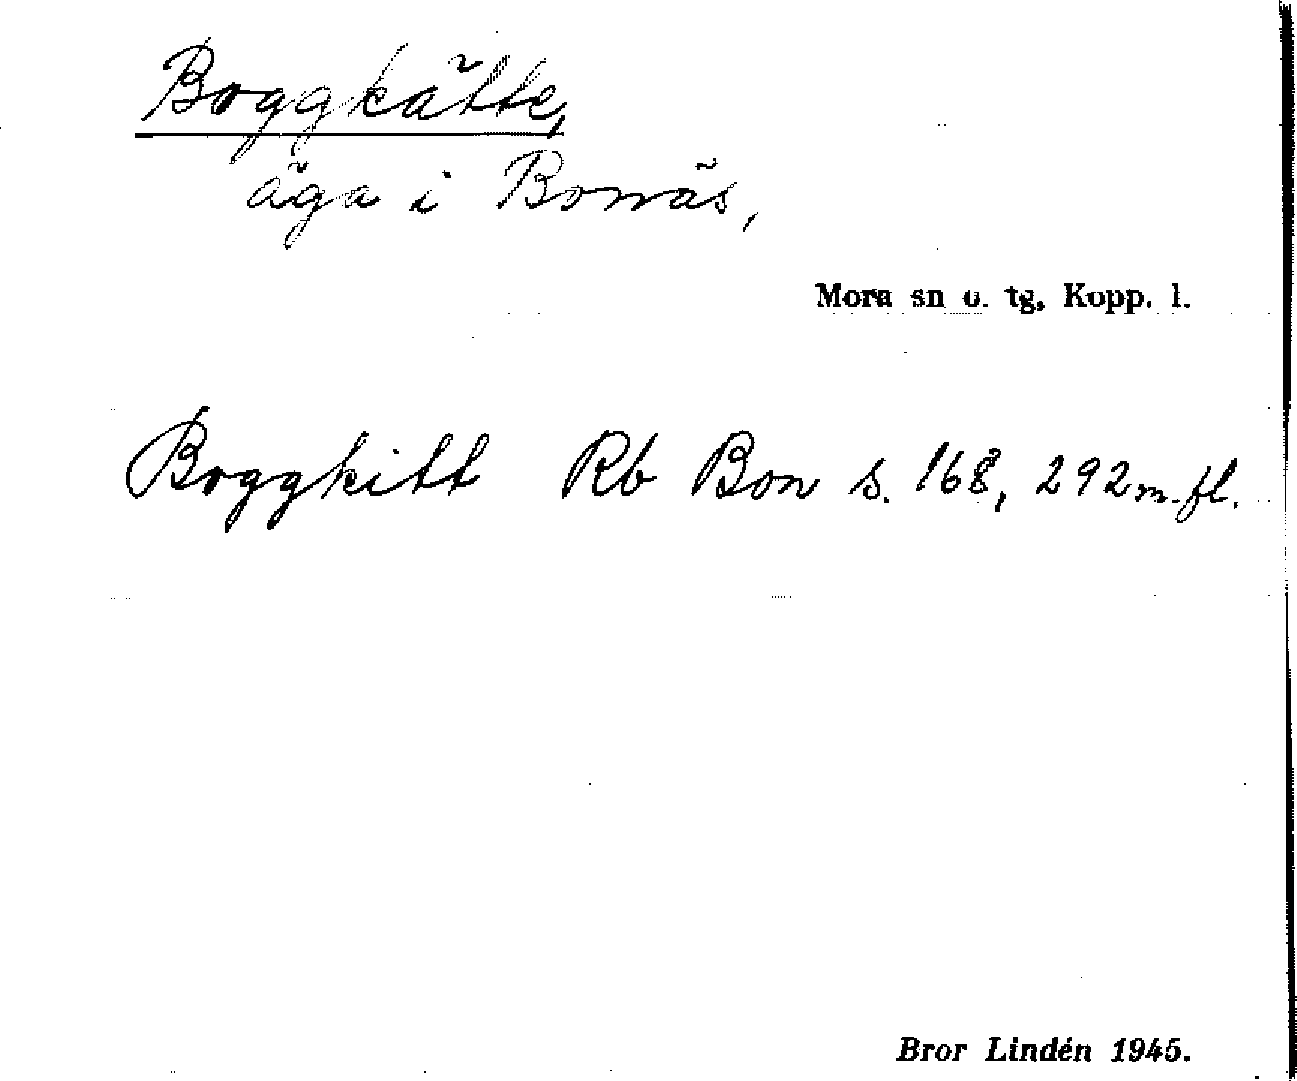 Boggkätte,
äga i Bonäs,
Mora sn o. tg, Kopp. l.
Boggkitt Rb Bon s. 168, 292 m. fl.
Bror Lindén 1945.